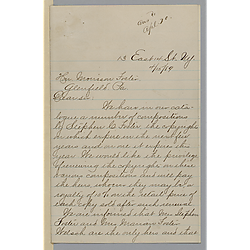 Ans'd
Apl 9"
13 East 14 St. Ny.
Hon Morrison Foster
Glenfield, Pa.
Dear sir:
We have in our cata-
logue a number of compositions
by Stephen C. Foster the copyrights
on which expire in the next few
years and on one it expires this
year. We would like the privilege
of renewing the copyrights on these
various compositions and will pay
the heirs whoever they may be a
royalty of on the retail price of
each copy sold after such renewal
We are informed that Mrs Stephen
Foster and Mrs Marion Foster
Welch are the only heirs and that